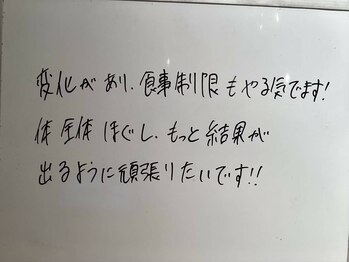 変化があり、食事制限もやる気でます!
体全体ほぐし、もっと結果が
出るように頑張りたいです!!